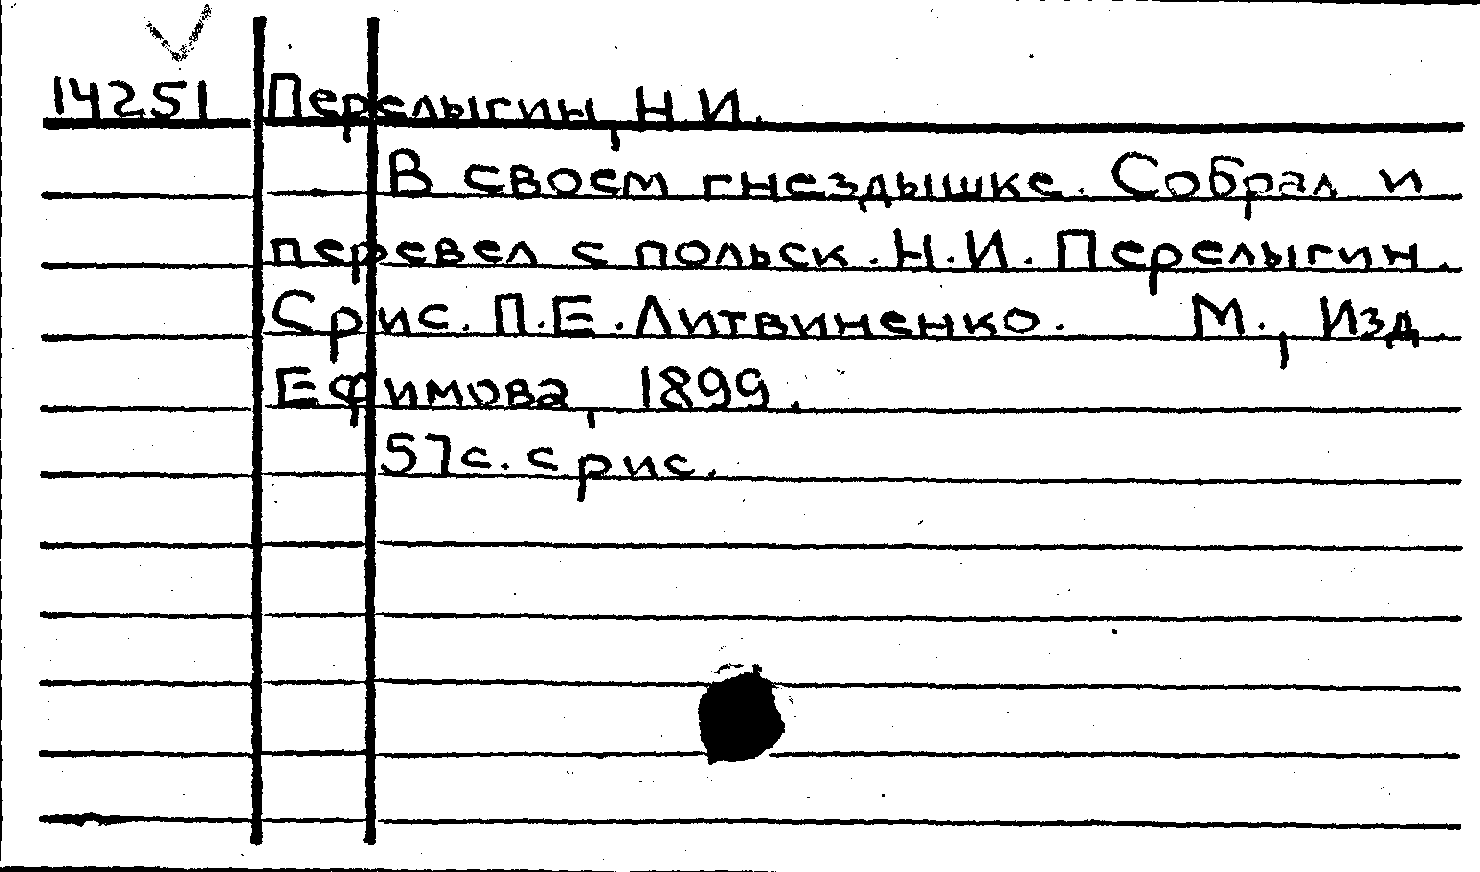 14251 Перелыгин, Н.И.
В своем гнездышке. Собрал и
перевел с польск. Н.И. Перелыгин.
С рис. П.Е. Литвиненко. М., Изд.
Ефимова, 1899.
57с. с рис.